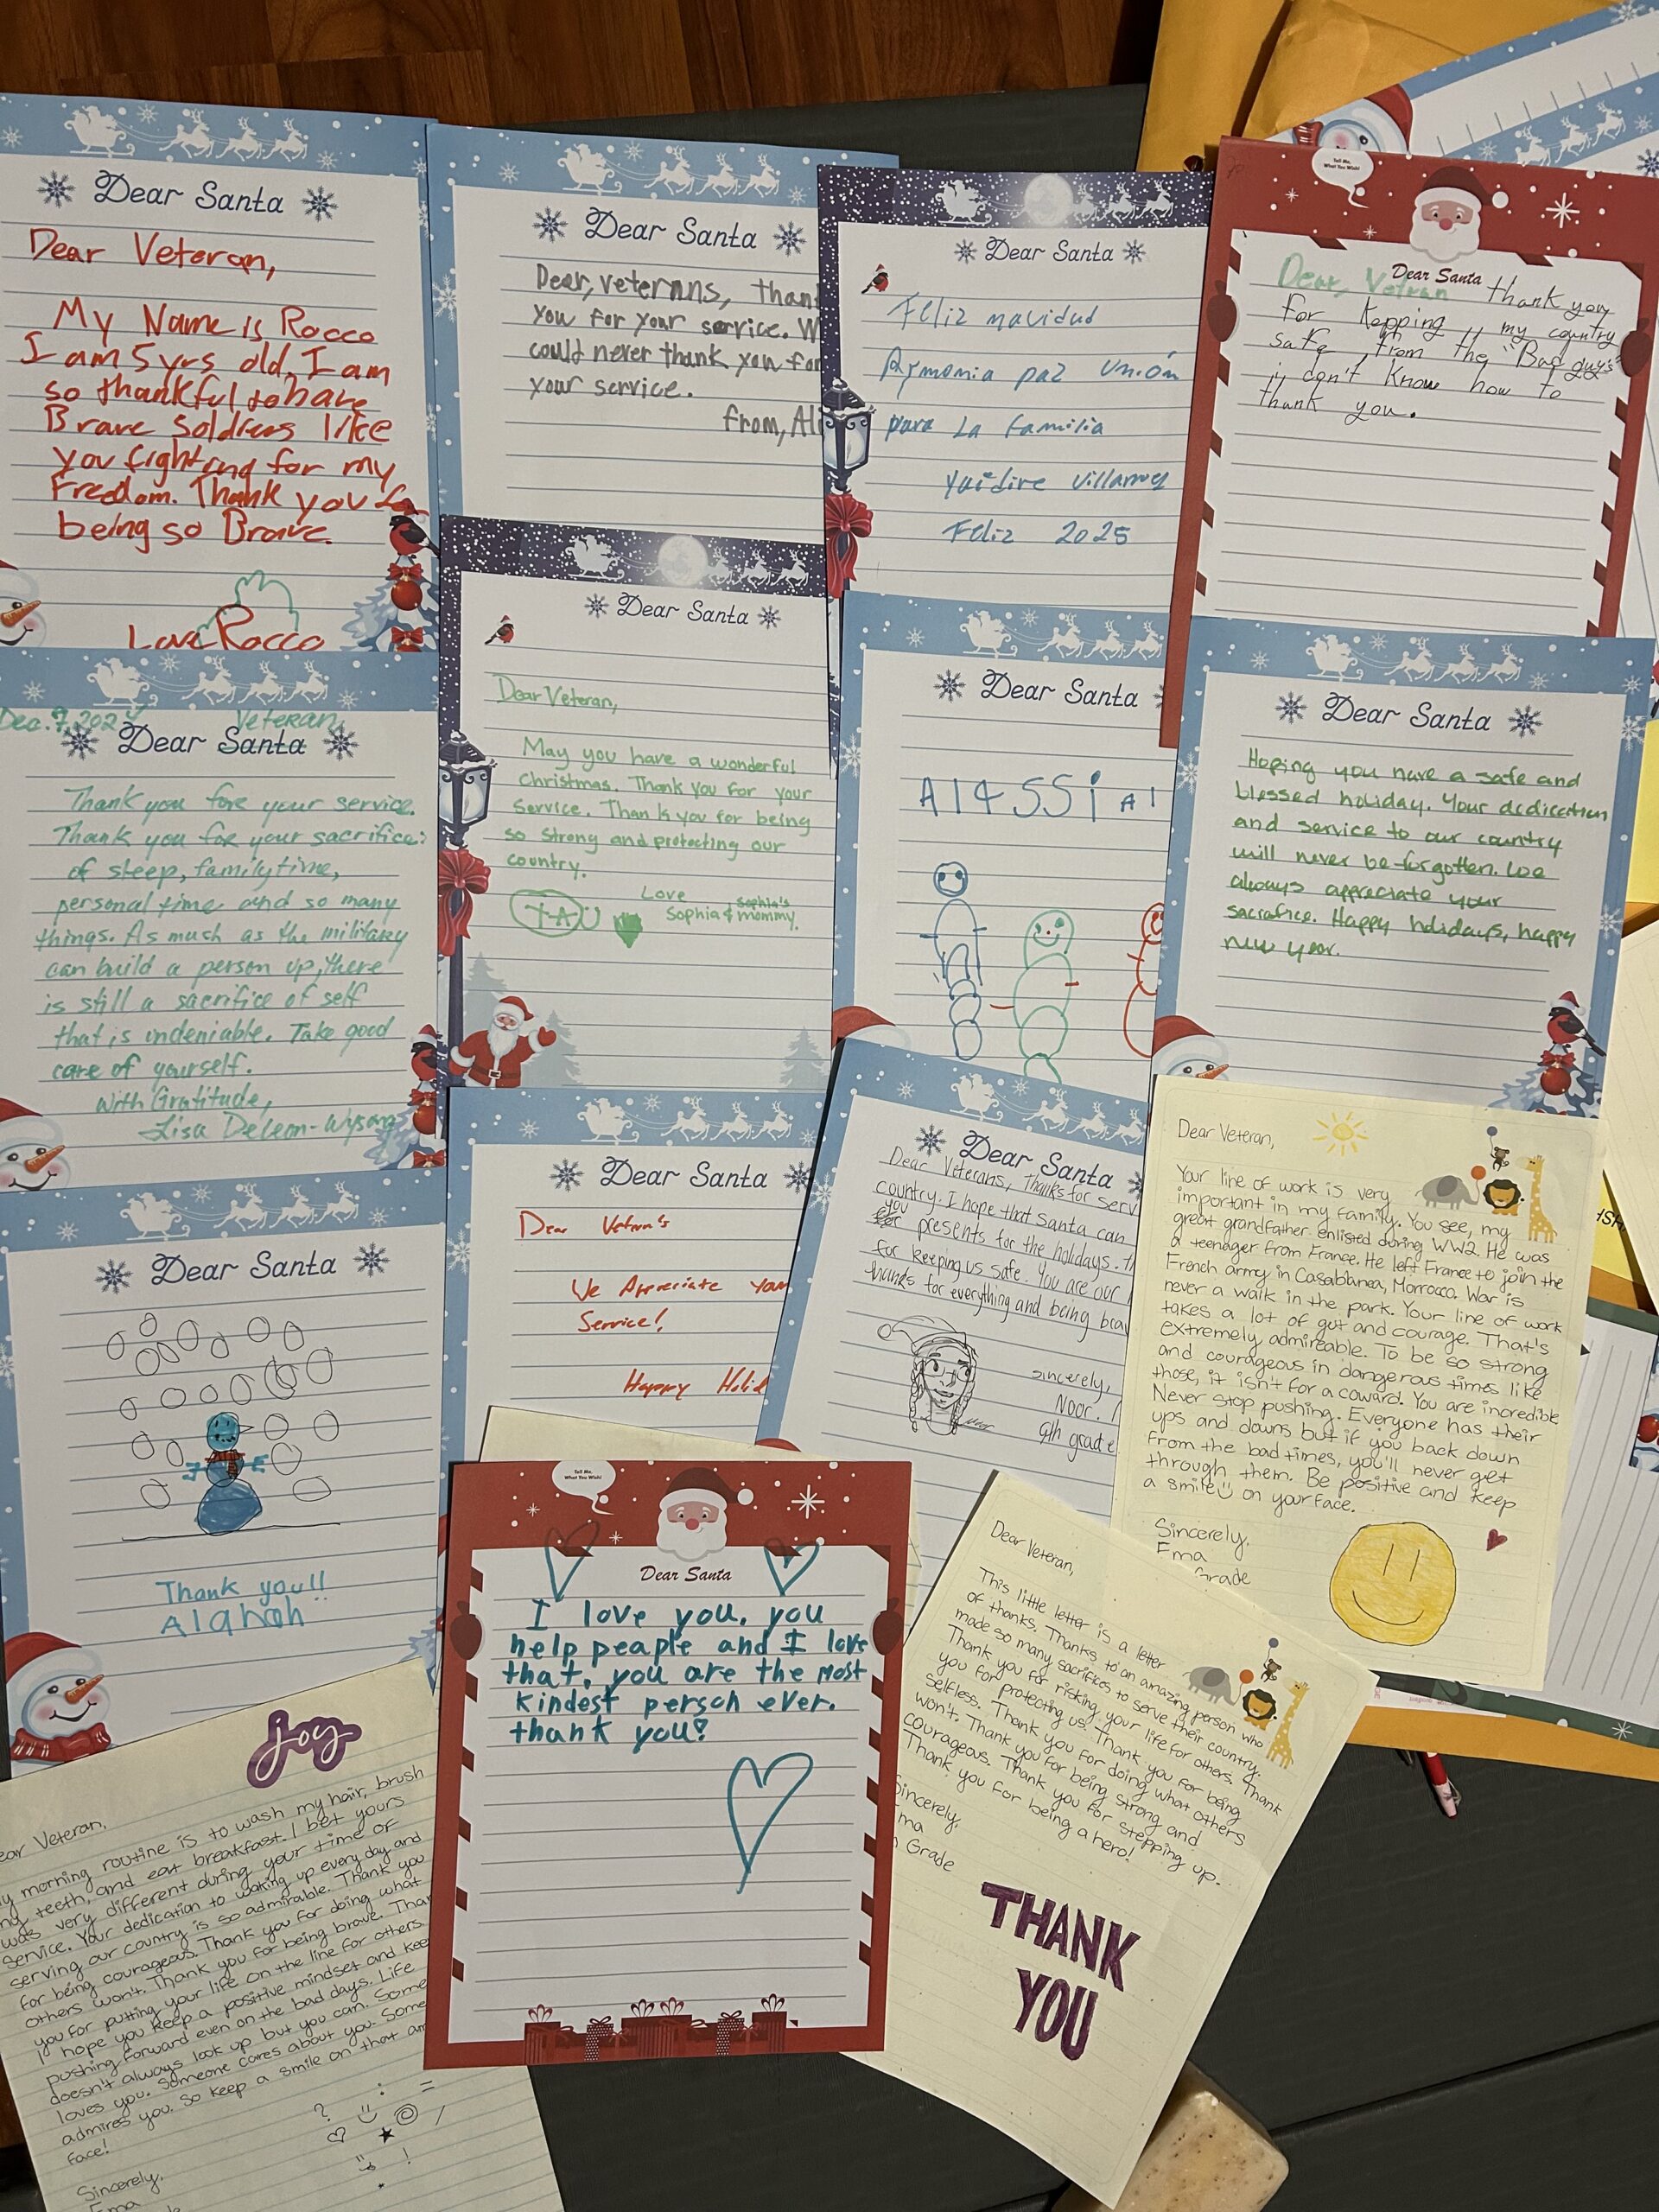 Dear Santa
Dear Veteran,
My Name is Rocco
I am 5 yrs old, I am
so thankful to have
Brave Soldiers like
you fighting for my
Freedom. Thank you
being so Brave.
Love Rocco
Dear Santa
Dear, veternns, than
you for your service. W
could never thank you for
your service.
from, Al
Dear Santa
Feliz navidad
Aymonia paz Unión
para La Familia
Feliz 2025
Tell Me,
What You Wish!
Dear Santa
Dear, Vetran thank you
for kepping my country
safe from the "Bad guys"
i don't know how to
thank you.
Dec. 9, 2024 Veteran
Dear Santa
Thank you fore your service.
Thank you for your sacrifice:
of sleep, family time,
personal time and so many
things. As much as the military
can build a person up, there
is still a sacrifice of self
that is undeniable. Take good
care of yourself.
With Gratitude,
Lisa DeLeon-Wysong
Dear Santa
Dear Veteran,
May you have a wonderful
christmas. Thank you for your
Service. Thank you for being
so strong and protecting our
country.
Love
Sophia & Sophia's mommy.
Dear Santa
Dear Santa
Hoping you have a safe and
blessed holiday. Your dedication
and service to our country
will never be forgotten. We
always appreciate your
sacrafice. Happy holidays, happy
new year.
Dear Santa
Thank you!!
Alanah
Dear Santa
Dear Vetran's
We Appreciate Your
Service!
Happy Holid
Dear Santa
Dear Veterans, Thanks for serv
country. I hope that Santa can
you presents for the holidays. Th
for keeping us safe. You are our
thanks for everything and being brav
sincerely,
Noor.
9th grade
Dear Veteran,
Your line of work is very
important in my family. You see, my
great grandfather enlisted during WW2. He was
a teenager from France. He left France to join the
French army in Casablanca, Morrocco. War is
never a walk in the park. Your line of work
takes a lot of gut and courage. That's
extremely admireable. To be so strong
and courageous in dangerous times like
those, it isn't for a coward. You are incredible
Never stop pushing. Everyone has their
ups and downs but if you back down
from the bad times, you'll never get
through them. Be positive and keep
a smile on your face.
Sincerely,
Ema
Grade
joy
ear Veteran,
y morning routine is to wash my hair, brush
ng teeth, and eat breakfast. I bet yours
was very different during your time of
Service. Your dedication to waking up every day and
serving our country is so admirable. Thank you
for being courageous. Thank you for doing what
others won't. Thank you for being brave. Than
you for putting your life on the line for others.
I hope you keep a positive mindset and keep
pushing forward even on the bad days. Life
doesn't always look up but you can. Some
loves you. Someone cares about you. Some
admires you. So keep a smile on that am
face!
Sincerely,
Ema
Tell Me,
What You Wish!
Dear Santa
I love you, you
help peaple and I love
that, you are the most
kindest person ever.
thank you!
Dear Veteran,
This little letter is a letter
of thanks. Thanks to an amazing person who
made so many sacrifices to serve their country.
Thank you for risking your life for others. Thank
you for protecting us. Thank you for being
selfless. Thank you for doing what others
won't. Thank you for being strong and
courageous. Thank you for stepping up.
Thank you for being a hero!
Sincerely,
ma
Grade
THANK
YOU